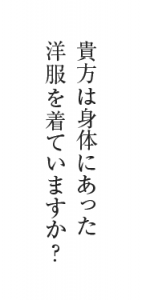 貴方は身体にあった
洋服を着ていますか?